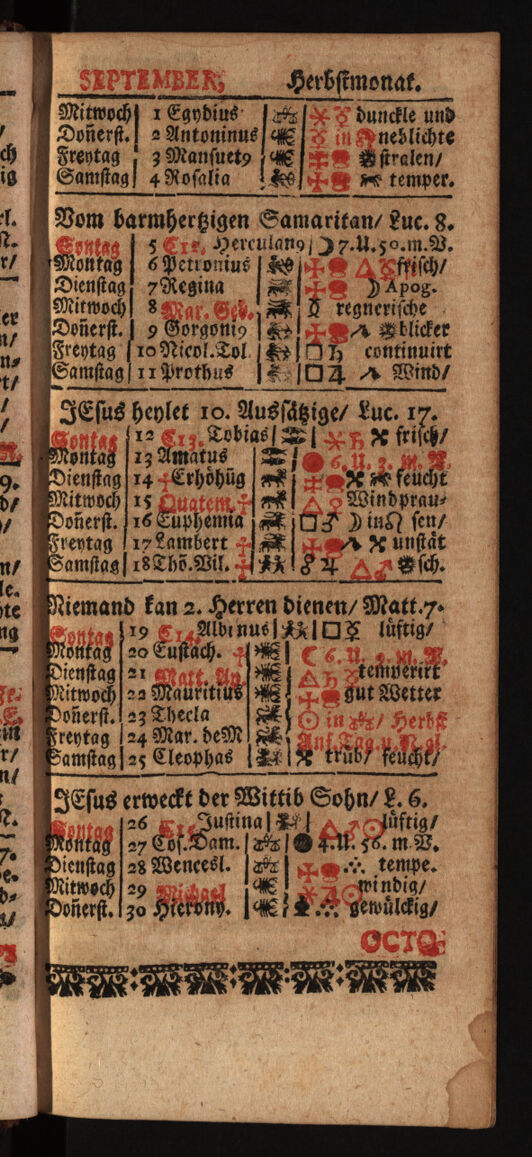 SEPTEMBER, Herbstmonat.
Mitwoch 1 Egydius ⚹ ☿ dunckle und
Doñerst. 2 Antoninus ☿ in neblichte
Freytag 3 Mansuet9 stralen/
Samstag 4 Rosalia temper.
Vom barmhertzigen Samaritan/ Luc. 8.
Sontag 5 C12. Herculan9 ☽ 7. U. 50. m. V.
Montag 6 Petronius △ frisch/
Dienstag 7 Regina ☽ Apog.
Mitwoch 8 Mar. Geb. ☿ regnerische
Doñerst. 9 Gorgoni9 blicker
Freytag 10 Nicol. Tol. □ ♄ continuirt
Samstag 11 Prothus □ ♃ Wind/
JEsus heylet 10. Aussätzige/ Luc. 17.
Sontag 12 C13. Tobias ⚹ ♄ frisch/
Montag 13 Amatus 6. U. 3. m. N.
Dienstag 14 Erhöhüg feucht
Mitwoch 15 Quatem. △ Windprau-
Doñerst. 16 Euphemia □ ♂ ☽ in ♌ sen/
Freytag 17 Lambert unstät
Samstag 18 Thö. Vil. ☍ ♃ △ ♂ sch.
Niemand kan 2. Herren dienen/ Matt. 7.
Sontag 19 C14. Albinus □ ☿ lüftig/
Montag 20 Eustach. ☾ 6. U. 9. m. V.
Dienstag 21 Matt. Ap. △ ♄ ☿ temperirt
Mitwoch 22 Mauritius gut Wetter
Doñerst. 23 Thecla ☉ in ♎/ Herbst
Freytag 24 Mar. deM Anf. Tag. u. N. gl.
Samstag 25 Cleophas trüb/ feucht/
JEsus erweckt der Wittib Sohn/ L. 6.
Sontag 26 C15. Justina △ ♂ ☉ lüftig/
Montag 27 Cos. Dam. 4. U. 56. m. V.
Dienstag 28 Wencesl. tempe.
Mitwoch 29 Michael ⚹ ♃ ☉ windig/
Doñerst. 30 Hierony. gewülckig/
OCTO-